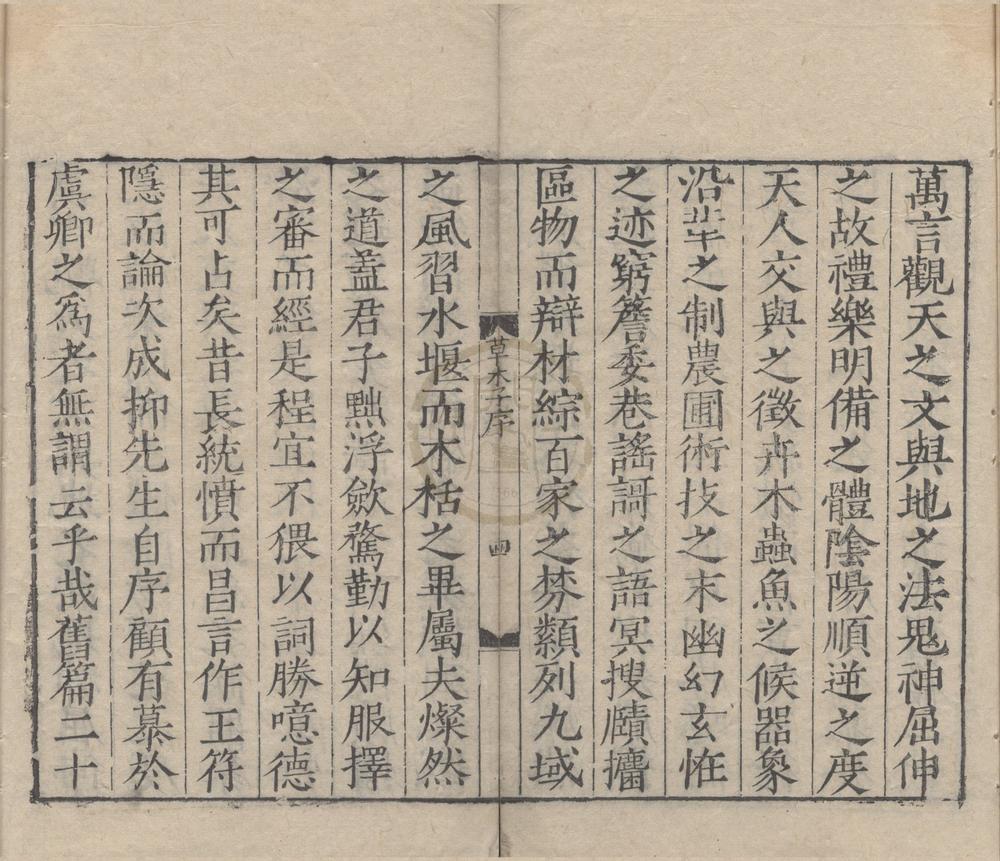 萬言觀天之文與地之法鬼神屈伸
之故禮樂明備之體陰陽順逆之度
天人交與之徵卉木蟲魚之候器象
沿革之制農圃術技之末幽幻玄怪
之迹窮簷委巷謠謌之語冥搜隲㩜
區物而辯材綜百家之棼類列九域
草木子序
四
之風習水堰而木栝之畢屬夫燦然
之道盖君子黜浮斂騖勤以知服擇
之審而經是程宜不猥以詞勝噫德
其可占矣昔長統憤而昌言作王符
隱而論次成抑先生自序顧有慕於
虞卿之爲者無謂云乎哉舊篇二十